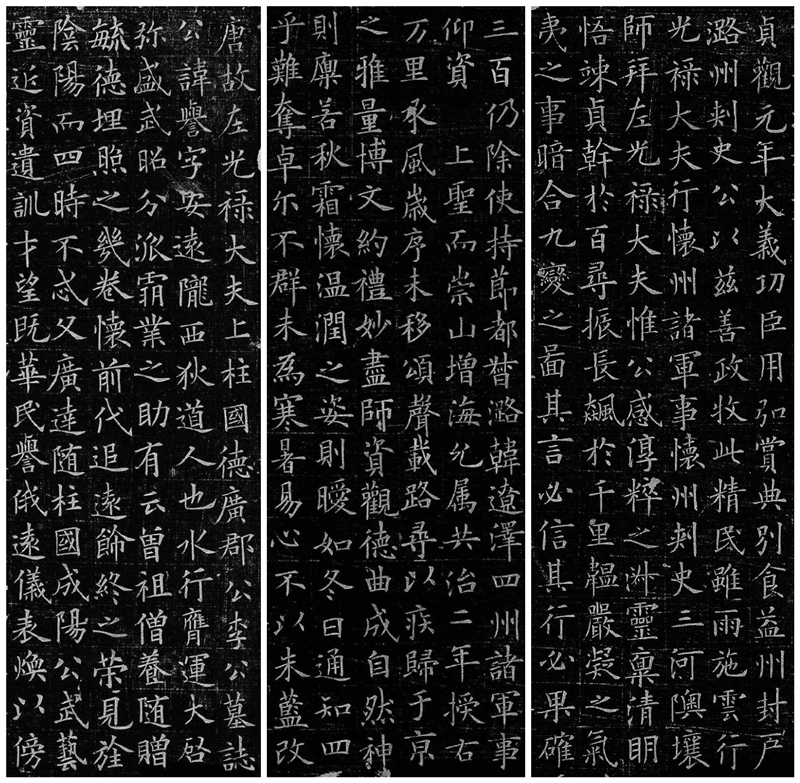 唐故左光祿大夫上柱國德廣郡公李公墓誌
公諱譽字安遠隴西狄道人也水行膺運大啓
弥盛武昭分派霸業之助有云曾祖僧養随贈
毓德埋照之幾卷懷前代追遠飾終之榮見旌
陰陽而四時不忒父廣達随柱國成陽公武藝
靈近資遺訓才望既華民譽攸遠儀表煥以傍
三百仍除使持節都督潞韓遼澤四州諸軍事
仰資 上聖而崇山增海允属共治二年授右
万里承風歲序未移頌聲載路尋以疾歸于京
之雅量博文約禮妙盡師資觀德曲成自然神
則廪若秋霜懷温潤之姿則曖如冬日通知四
乎難奪卓尔不群未為寒暑易心不以朱藍改
貞觀元年大義功臣用弘賞典別食益州封戸
潞州刺史公以茲善政牧此精民雖雨施雲行
光祿大夫行懷州諸軍事懷州刺史三河隩壤
師拜左光祿大夫惟公感淳粹之靈稟清明
悟竦貞幹於百尋振長飆於千里韞嚴凝之氣
夷之事暗合九變之啚其言必信其行必果確